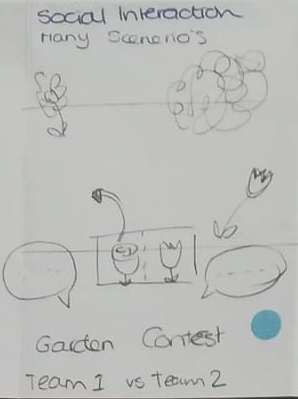 Social Interaction
Many Scenerio's
Garden Contest
Team 1 vs Team 2